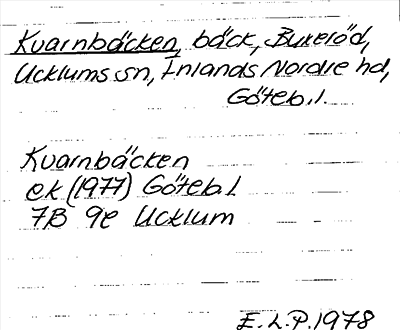 Kvarnbäcken, bäck, Bureröd,
Ucklums sn, Inlands Nordre hd,
Göteb.l.
Kvarnbäcken
ek (1977) Göteb.l
7B 9e Ucklum
E.L.P. 1978